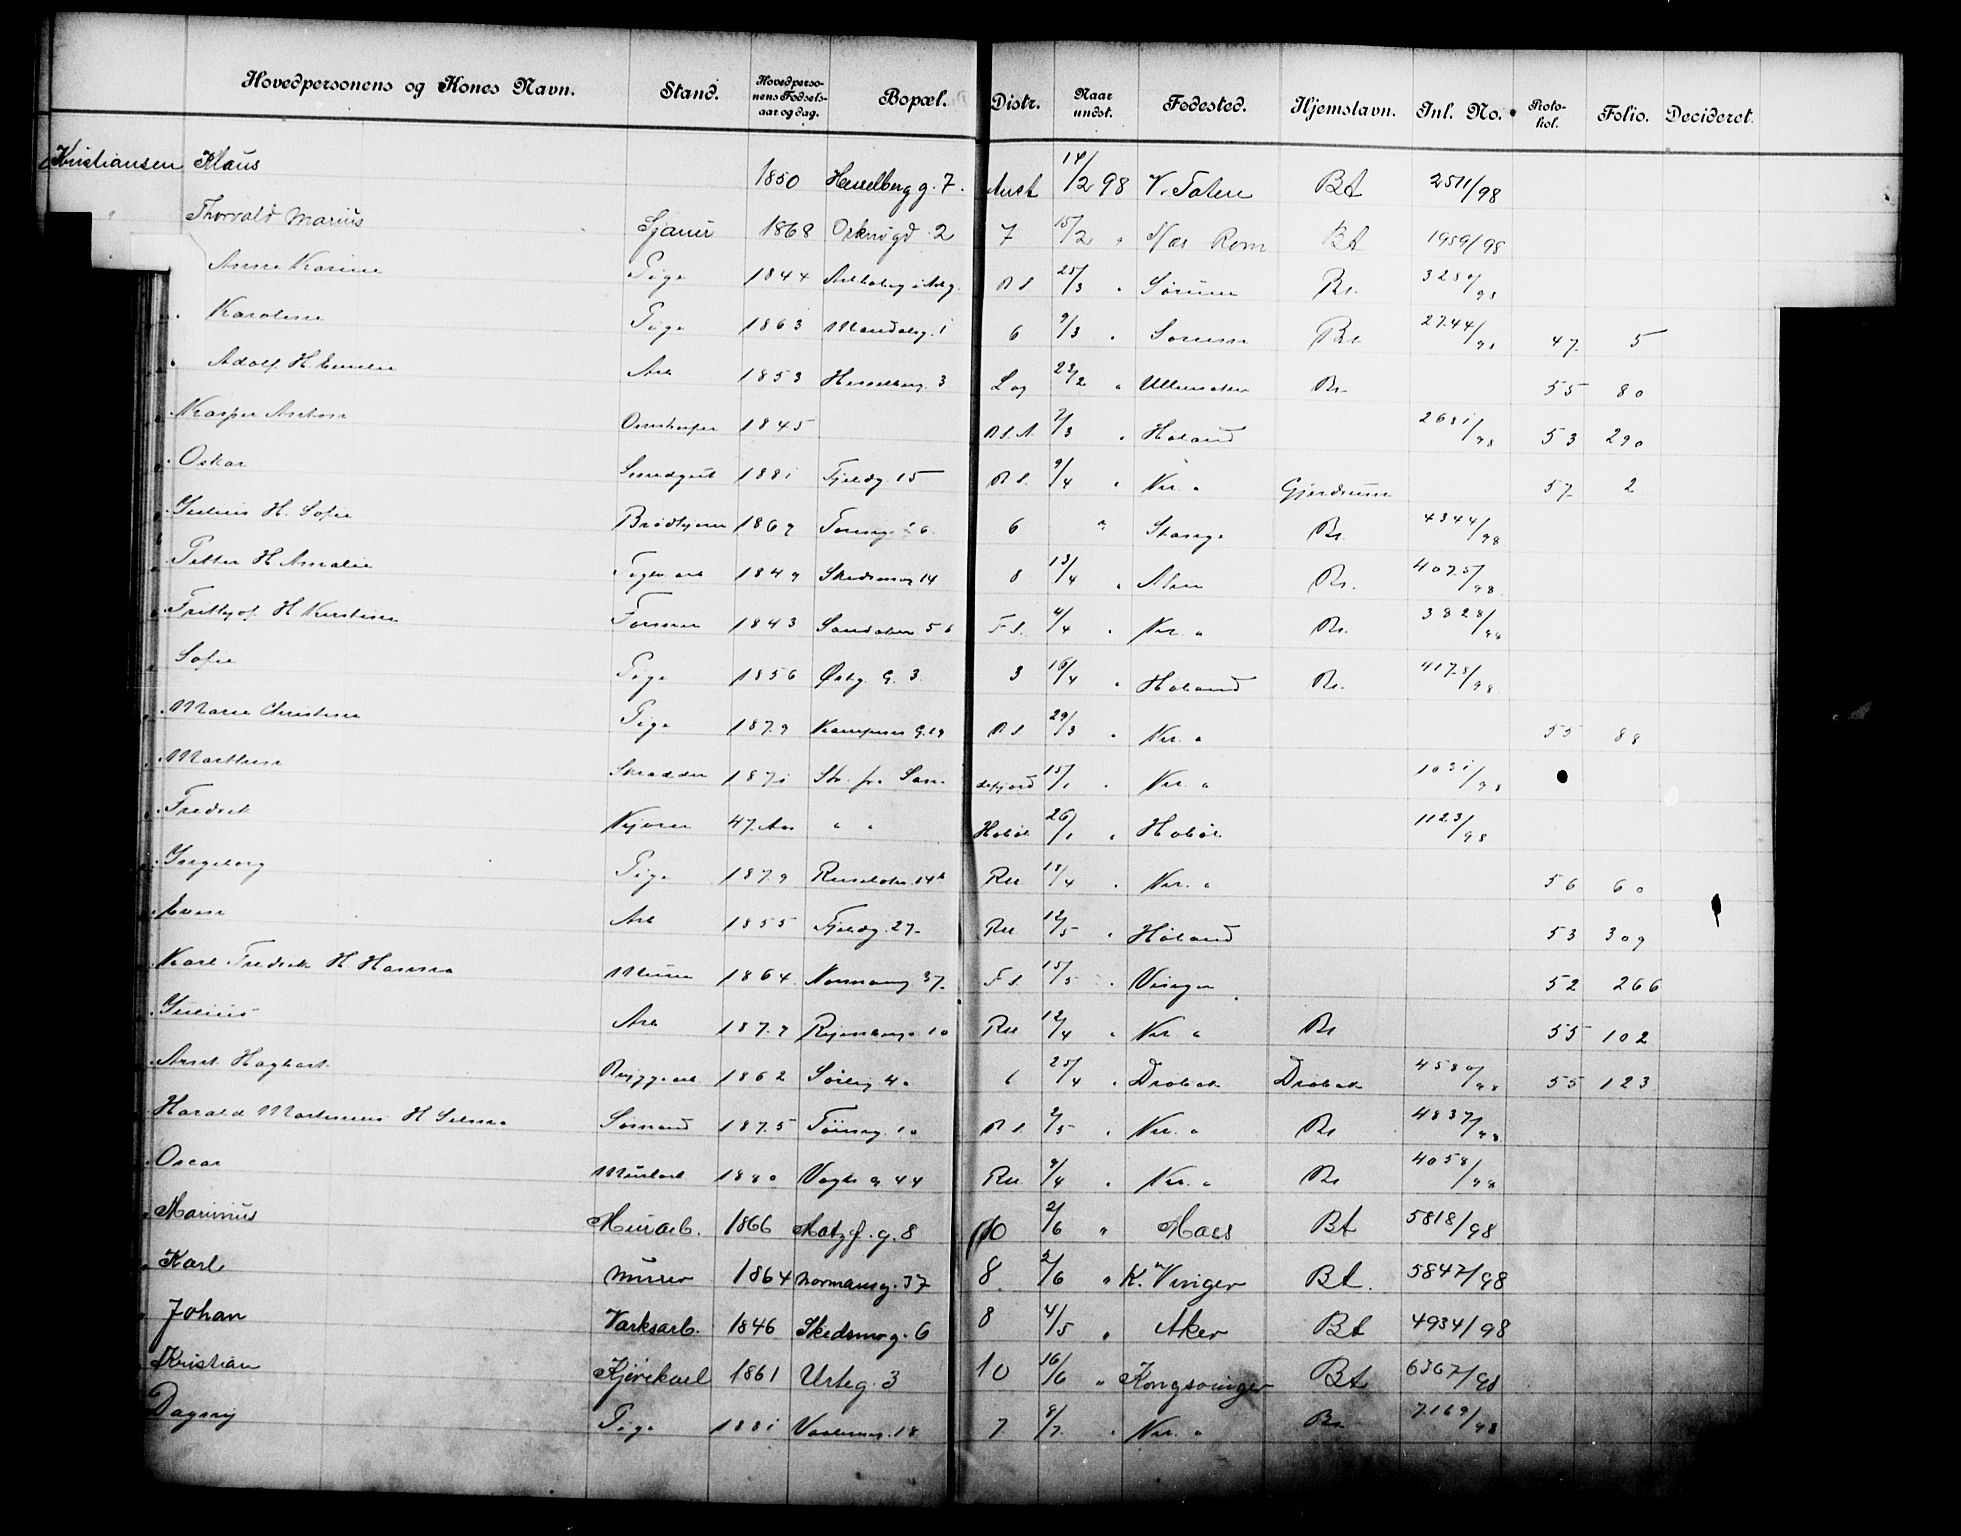 Hovedpersonens og Kones Navn. Stand. Hovedpersonens Fødselsaar og dag. Bopæl. Distr. Naar undst. Fødested. Hjemstavn. Inl. No. Protokol. Folio. Decideret.
Kristiansen Klaus 1850 Hesselberg g. 7. 14/2 98 V. Toten Bt 2511/98
Thorvald Marius Sjauer 1868 2 7 15/2 " Næs Rom Bt 1959/98
Anne Karine Pige 1844 25/3 " Sørum Bt. 3280/98
Karoline Pige 1863 Mandalsg. 1 6 9/3 " Sørum Bt 2744/98 47 5
Adolf H. Emilie Arb 1853 Hesselberg. 3 Log 22/2 " Ullensaker Bt. 55 80
Kasper Anton 1845 7/3 " Høland 2631/98 53 290
Oskar Smedgut 1881 Fjeldg 15 9/4 " Kr. a Gjerdrum 57 2
Julius H. Sofie Brødkjører 1867 6 " Stange Bt. 4344/98
Petter H Amalie Teglv. arb 1849 Skedsmog 14 8 13/4 " Aker Bt. 4075/98
Fritjof H Kirstine 1843 56 F S. 4/4 " Kr. a Bt. 3828/98
Sofie Pige 1856 Østg. G. 3. 3 16/4 " Høland Bt. 4178/98
Marie Christine Pige 1879 Kampens G. 19 29/3 " Kr. a 55 88
Martin Skrædder 1871 St. fr. Sandefjord 15/1 " Kr. a 1031/98
Fredrik Kjører 47 Aar " " Hobøl 26/1 " Hobøl 1123/98
Ingeborg Pige 1879 14b 18/4 " Kr. a 56 60
Even Arb 1855 Fjeldg. 27 12/5 " Høland 53 309
Karl Fredrik H Hanna Murer 1864 Normansg 37. F S. 15/5 " Vinger 52 266
Julius Arb 1877 10 12/4 " Kr. a Bt 55 102
Arnt Hagbart Bryggearb 1862 Sørlig 40 6 25/4 " Drøbak Drøbak 4580/98 55 123
Harald Martinius H Selma Sømand 1875 Tøieng. 10 2/5 " Kr. a Bt 4837/98
Oscar Murarb 1880 Vogts g 44 9/4 " Kr. a Bt 4058/98
Marinius Murarb. 1866 g. 8 10 2/6 " Moss Bt 5818/98
Karl Murer 1864 Normansg. 37 8 2/6 " K. Vinger Bt. 5847/98
Johan Værksarb. 1846 Skedsmog. 6 8 4/5 " Aker Bt 4934/98
Kristian Kjørekarl 1861 Urteg. 3 10 16/6 " Kongsvinger Bt 6367/98
Dagny Pige 1881 18 7 8/7 " Kr. a Bt 7169/98